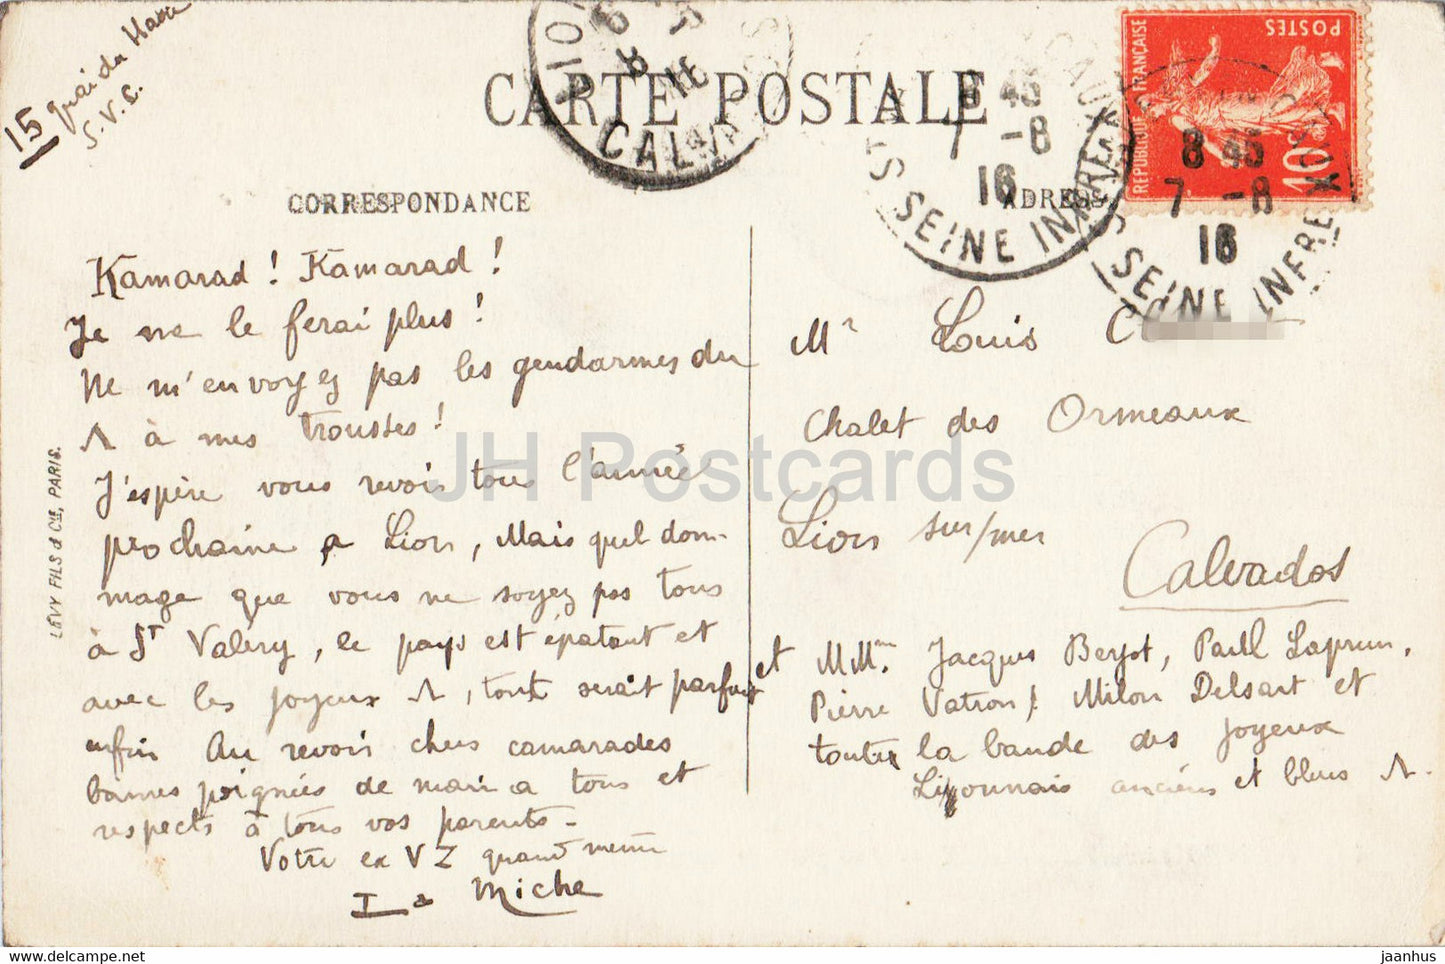 15 quai du Havre
S.V.C.
CARTE POSTALE
CORRESPONDANCE
ADRESSE
CALVADOS
8 45
7 -8
16
SEINE INFRE
8 45
7 -8
16
SEINE INFRE
POSTES
REPUBLIQUE FRANÇAISE
10c
Kamarad ! Kamarad !
Je ne le ferai plus !
Ne m'envoyez pas les gendarmes du
Λ à mes trousses !
J'espère vous revoir tous l'année
prochaine a Lion, Mais quel dom-
mage que vous ne soyez pas tous
à St Valéry, le pays est épatant et
avec les joyeux Λ, tout serait parfait et
enfin Au revoir chers camarades
bonnes poignées de main a tous et
respects à tous vos parents.
Votre ex VZ quand même
I a Miche
Mr Louis C
Chalet des Ormeaux
Lion sur/mer
Calvados
et MMrs Jacques Berjot, Paul Laprun,
Pierre Vatron, Milon Delsart et
toute la bande des joyeux
Lyonnais anciens et bleus Λ.
LÉVY FILS & Cie, PARIS.
JH Postcards
hipstamp.com
jaanhus